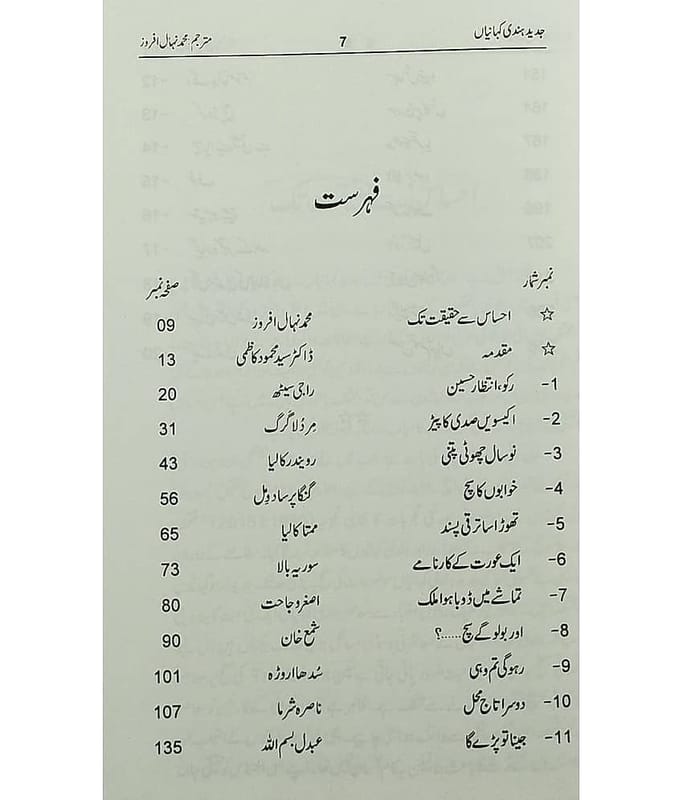 جدید ہندی کہانیاں 7 مترجم: محمد نہال افروز
فہرست
نمبر شمار صفحہ نمبر
☆ احساس سے حقیقت تک محمد نہال افروز 09
☆ مقدمہ ڈاکٹر سید محمود کاظمی 13
1- رکو، انتظار حسین راجی سیٹھ 20
2- اکیسویں صدی کا پیڑ مردلا گرگ 31
3- نو سال چھوٹی پتنی رویندر کالیا 43
4- خوابوں کا سچ گنگا پرساد ومل 56
5- تھوڑا سا ترقی پسند ممتا کالیا 65
6- ایک عورت کے کارنامے سوریہ بالا 73
7- تماشے میں ڈوبا ہوا ملک اصغر وجاحت 80
8- اور بولو گے سچ......؟ شمع خان 90
9- رہوگی تم وہی سُدھا اروڑہ 101
10- دوسرا تاج محل ناصرہ شرما 107
11- جینا تو پڑے گا عبدل بسم اللہ 135